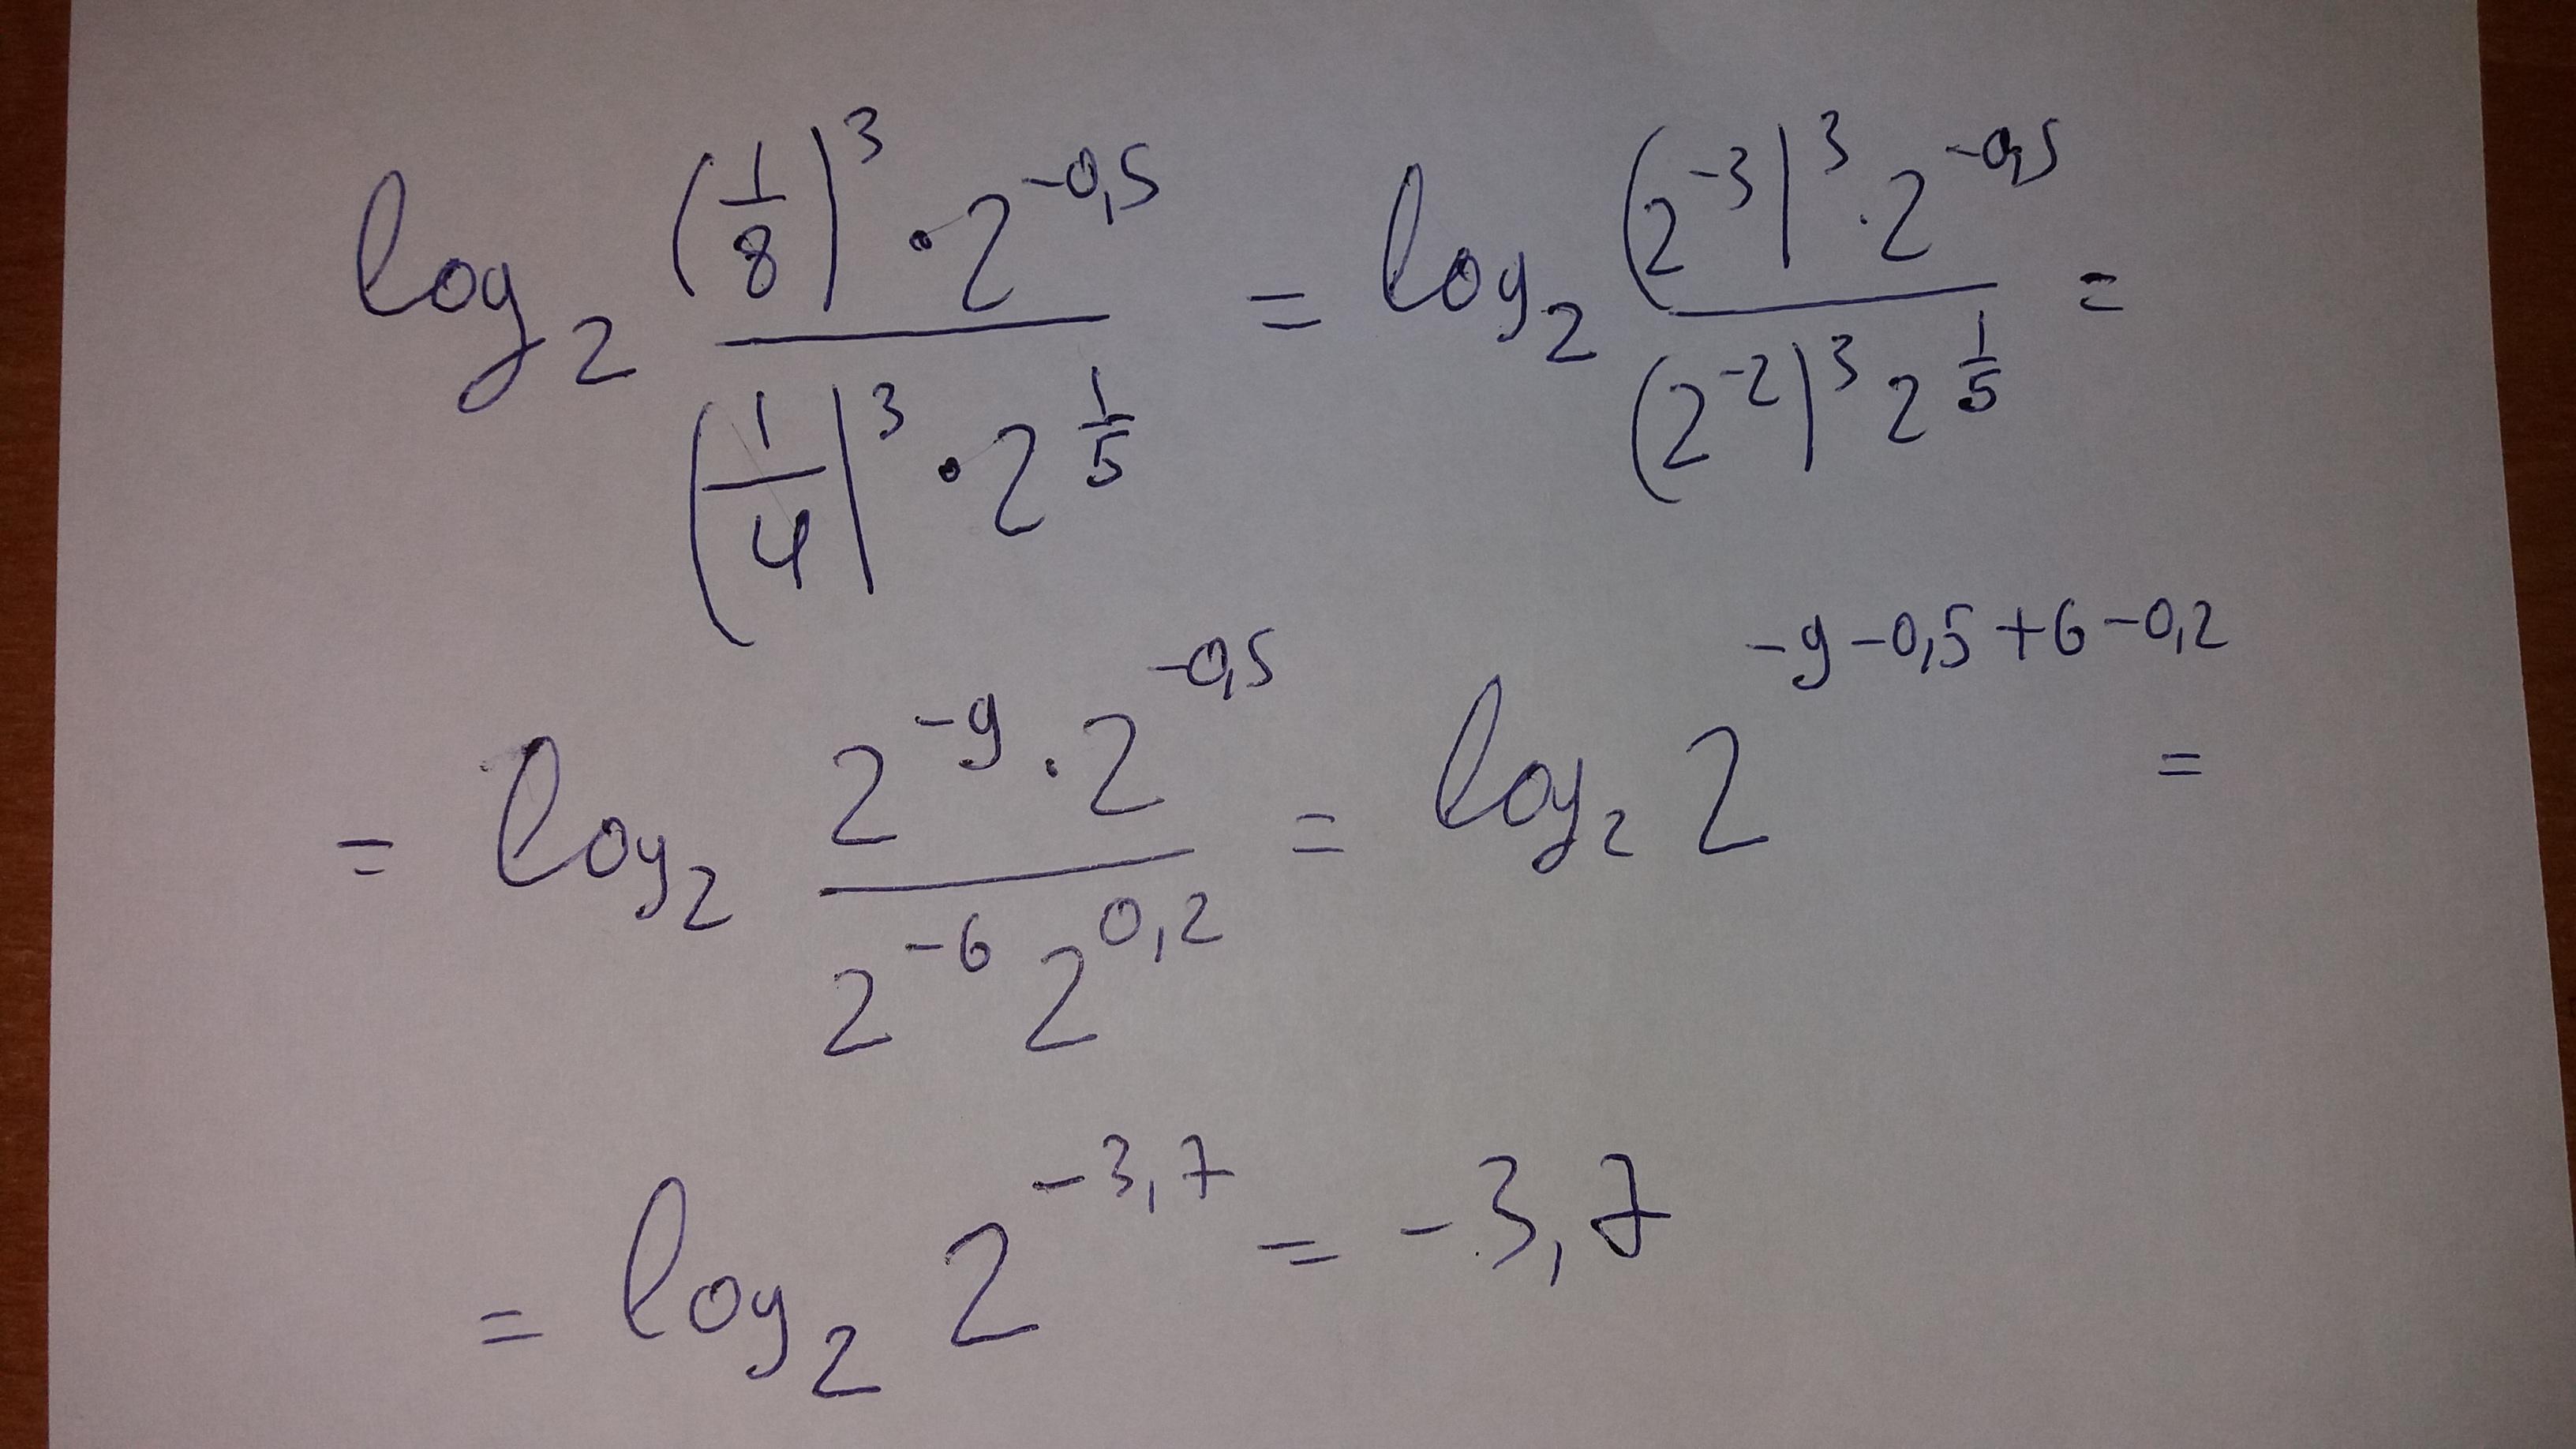 log₂ ((1/8)³ · 2^(-0,5)) / ((1/4)³ · 2^(1/5)) = log₂ ((2^(-3))³ · 2^(-0,5)) / ((2^(-2))³ 2^(1/5)) =
= log₂ (2^(-9) · 2^(-0,5)) / (2^(-6) 2^(0,2)) = log₂ 2^(-9-0,5+6-0,2) =
= log₂ 2^(-3,7) = -3,7